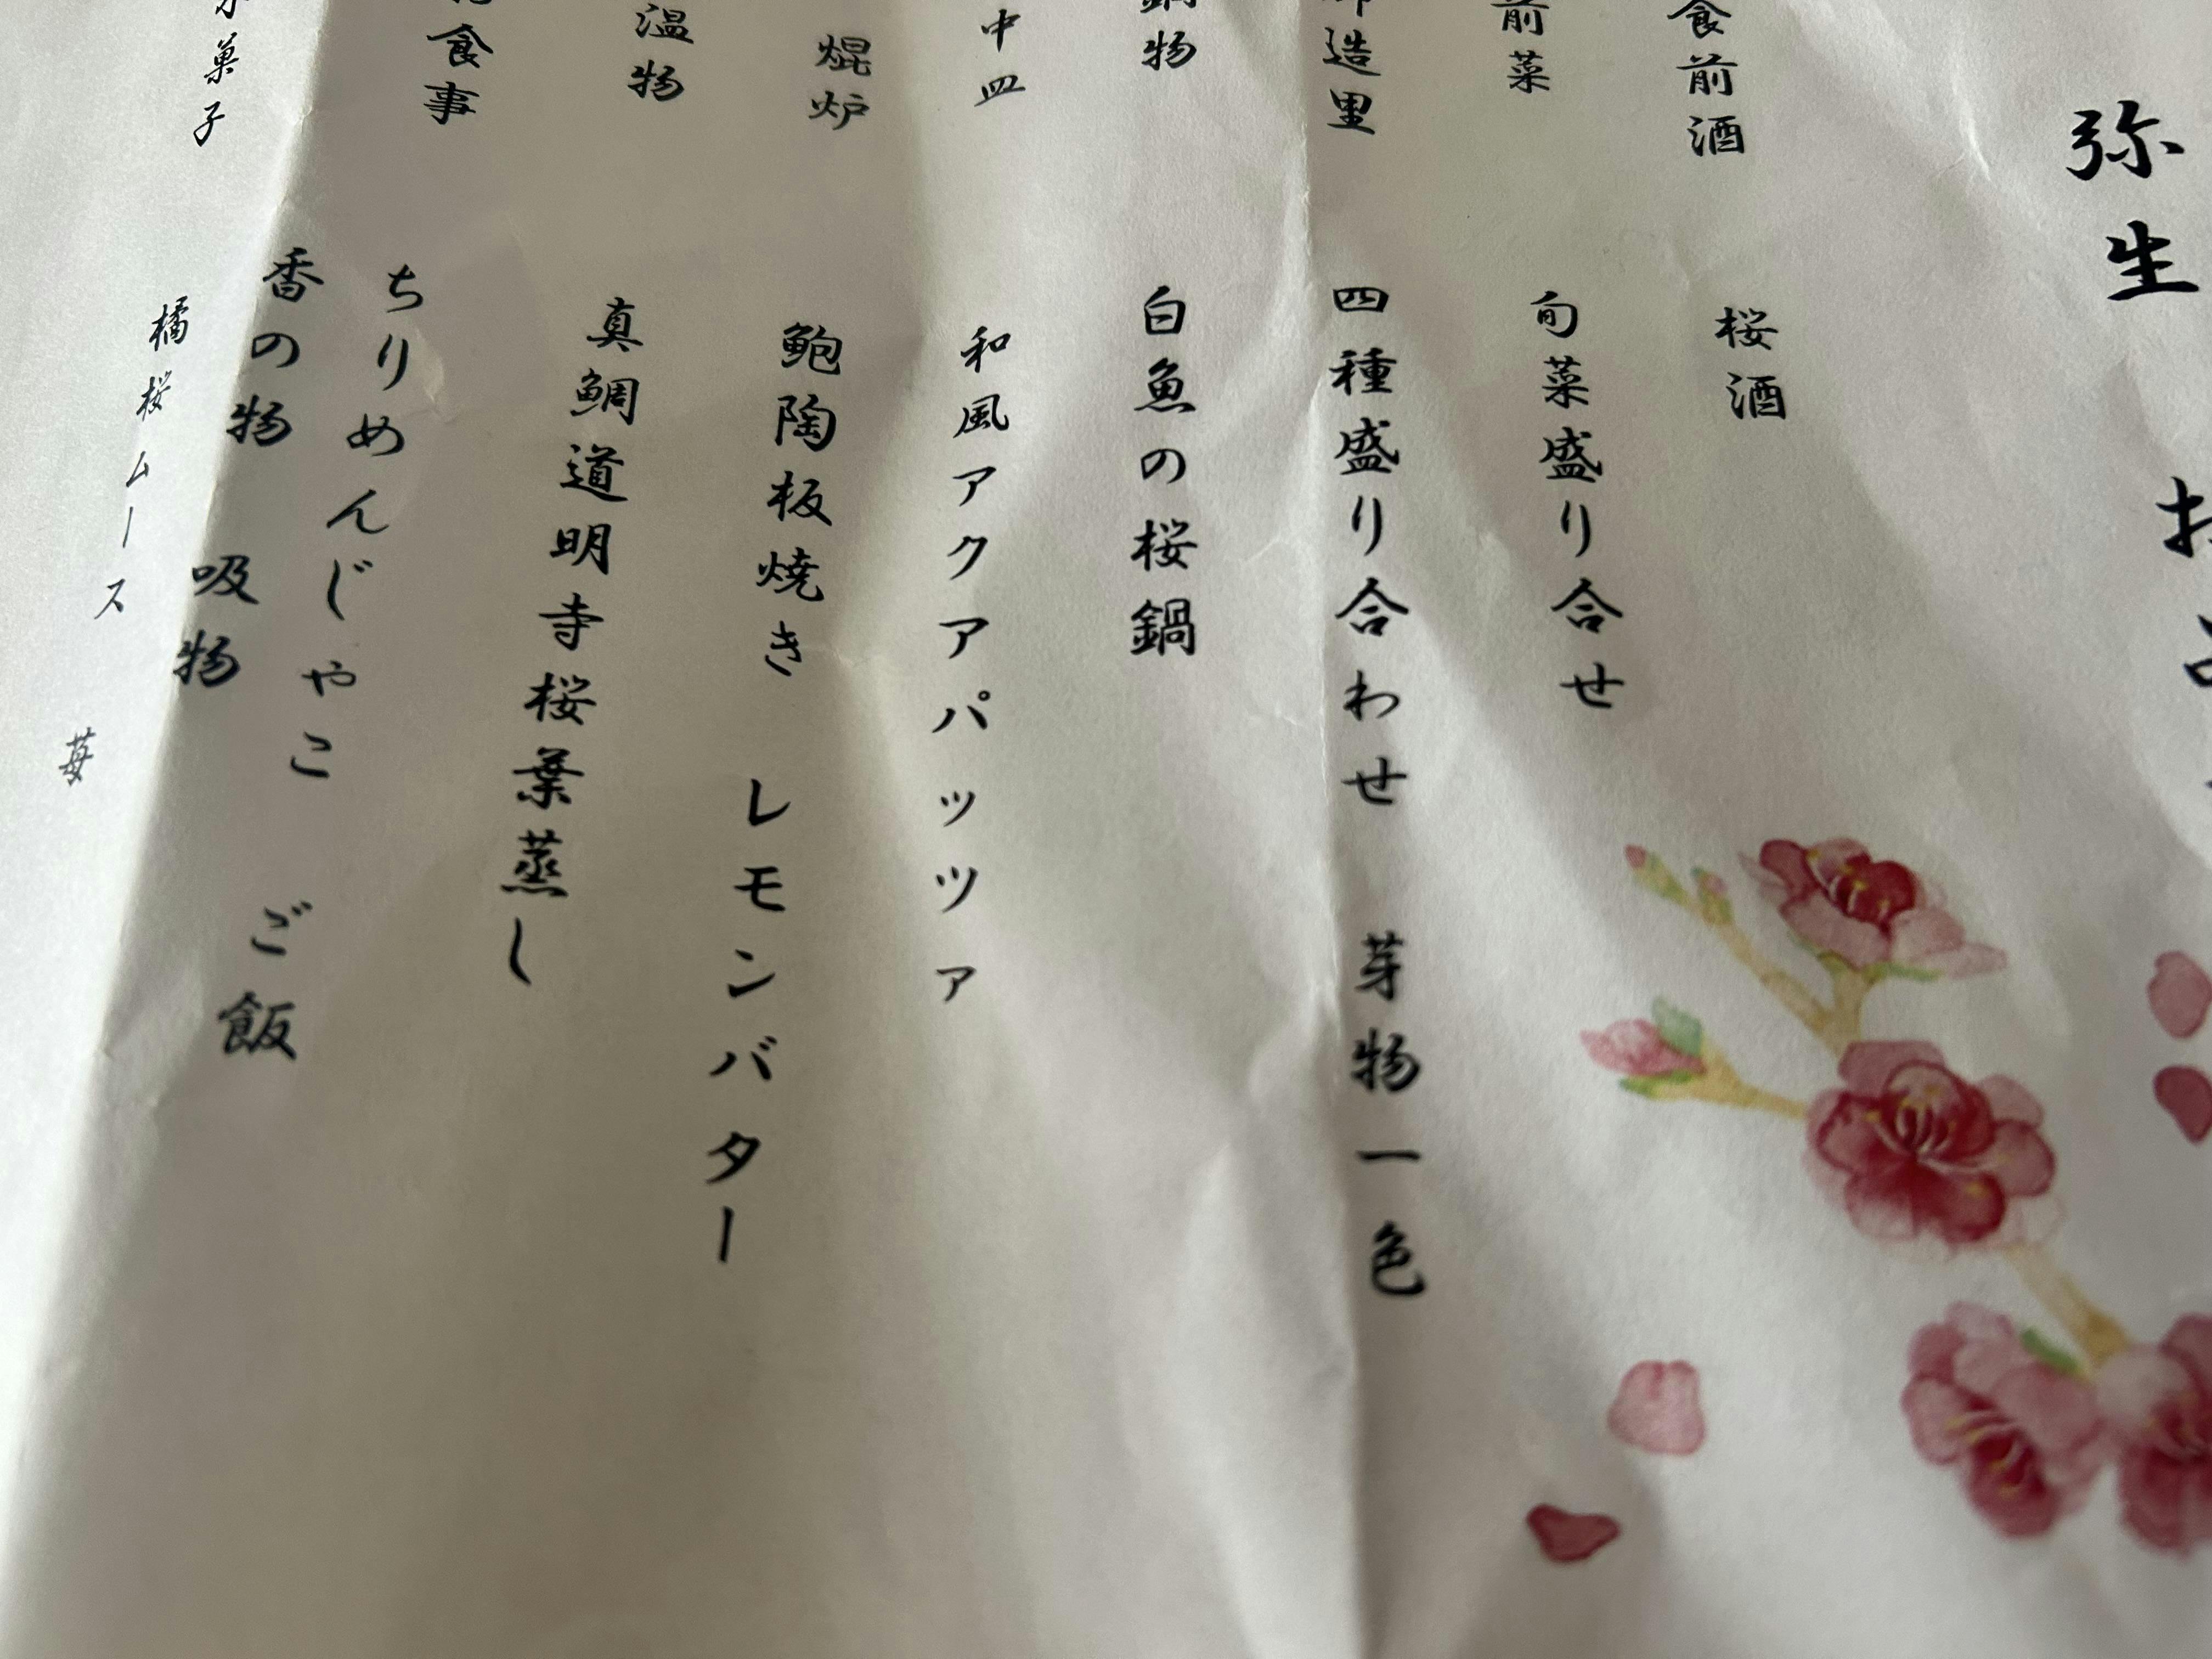 弥生
食前酒 桜酒
前菜 旬菜盛り合せ
造里 四種盛り合わせ 芽物一色
鍋物 白魚の桜鍋
中皿 和風アクアパッツァ
焜炉 鮑陶板焼き レモンバター
温物 真鯛道明寺桜葉蒸し
食事 ちりめんじゃこ ご飯
香の物 吸物
菓子 橘桜ムース 苺